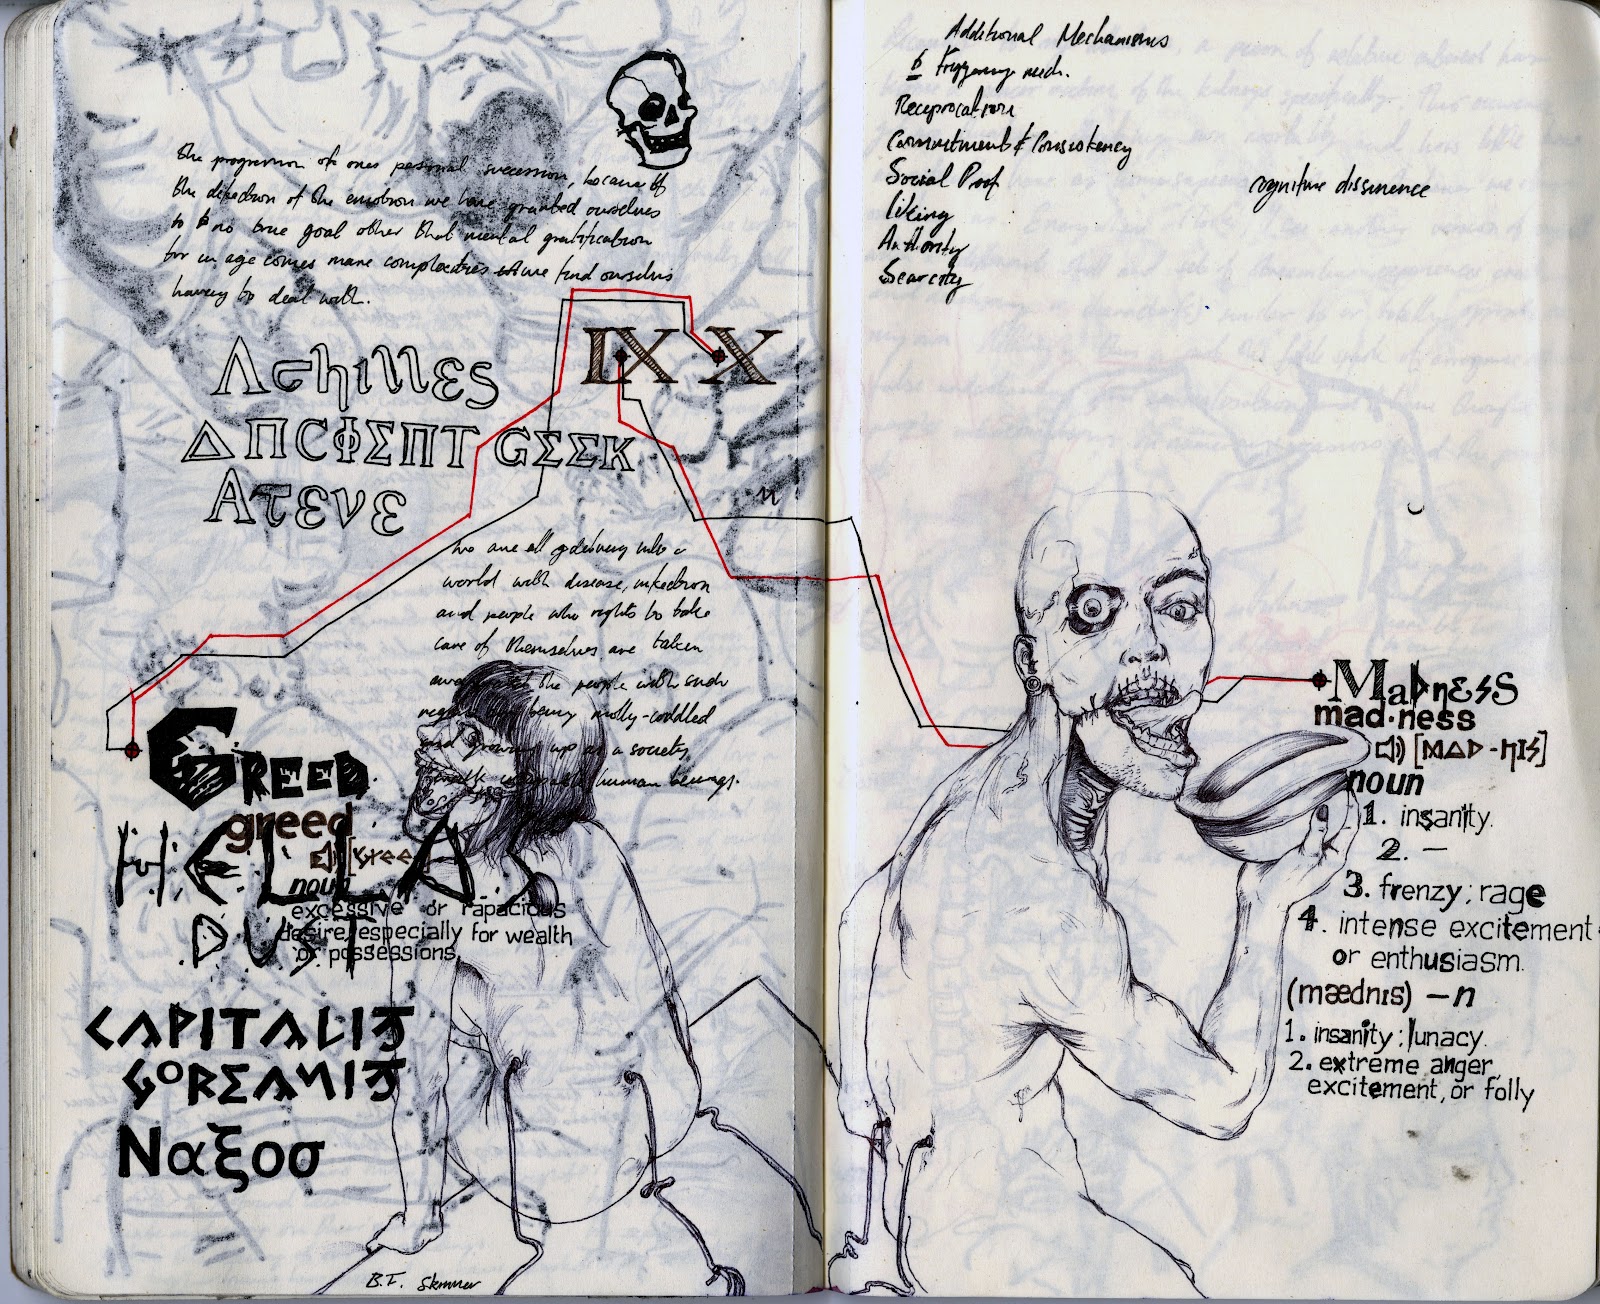 The progression of ones personal succession, because if
the direction of the emotion we have granted ourselves
to no true goal other that mental gratification
for in age comes more complexities we find ourselves
having to deal with.
Achilles
ΔΠCΦΣΠT GΣΣK
Aτενε
IX X
We are all
world with disease, infection
and people who rights to take
care of themselves are taken
the people with such
being molly-coddled
and growing up as a society
human beings.
GREED
greed
noun
excessive or rapacious
desire, especially for wealth
or possessions.
HELLA
DUST
CAPITALIS
Ναξοσ
B.F. Skinner
Additional Mechanisms
6
Reciprocation
Commitment & Consistency
Social Proof
liking
Authority
Scarcity
cognitive dissinence
Madness
mad·ness
noun
1. insanity.
2. —
3. frenzy; rage
4. intense excitement
or enthusiasm.
(mædnɪs) –n
1. insanity; lunacy.
2. extreme anger,
excitement, or folly